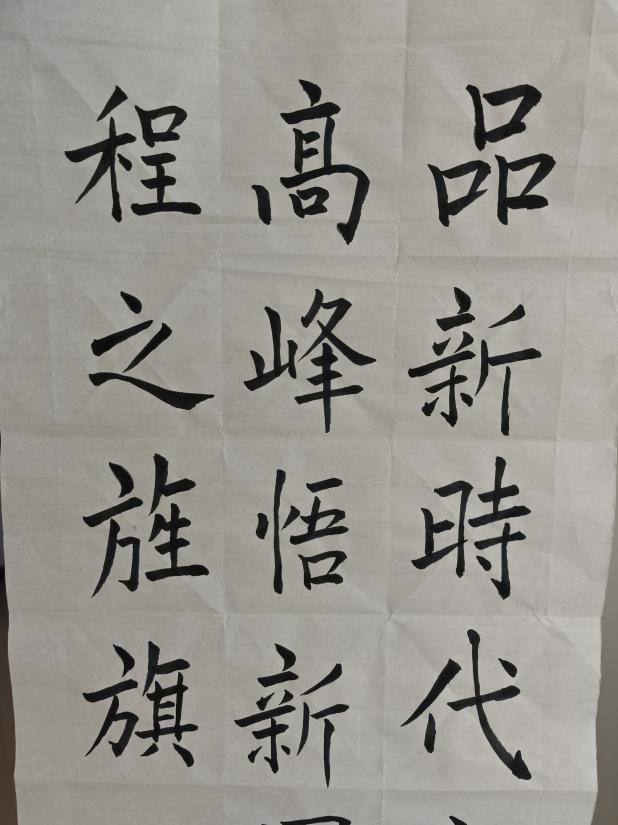 品新時代
高峰悟新
程之旌旗